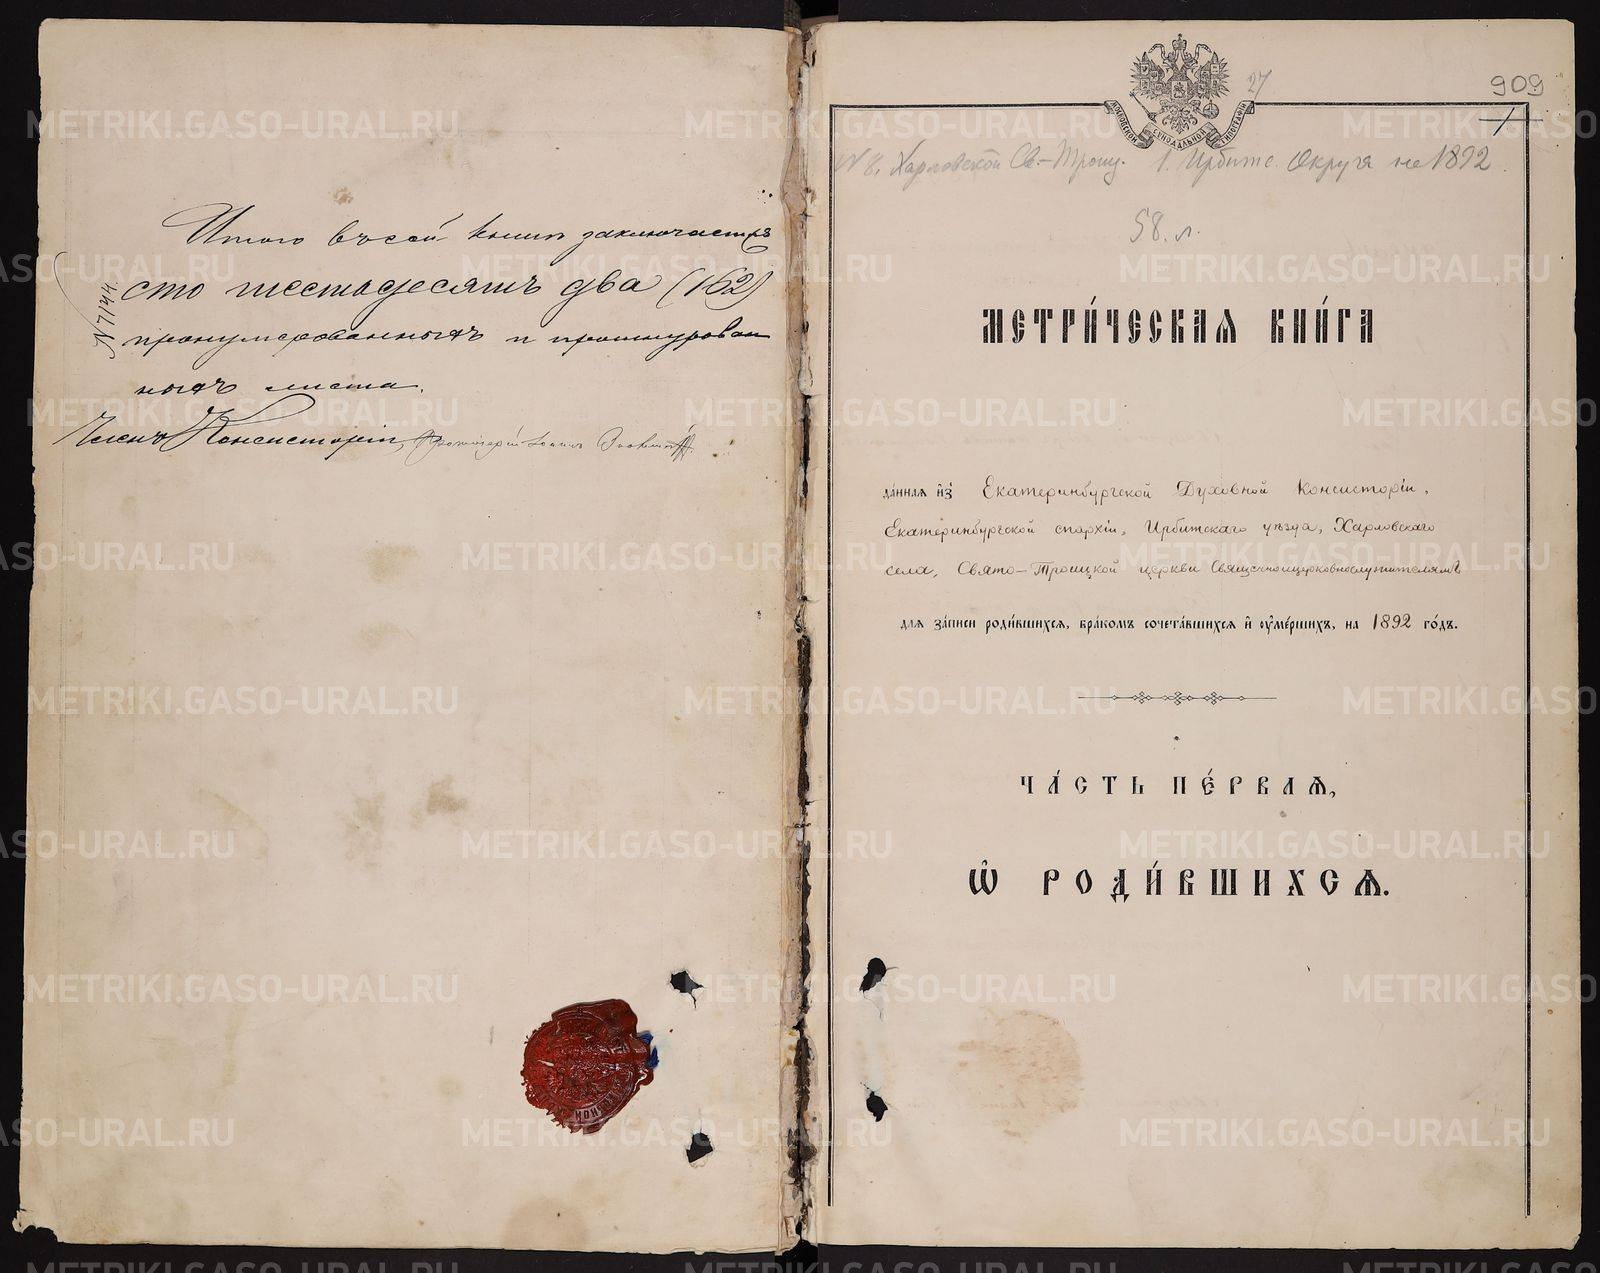 Итого въ сей книгѣ заключается
сто шестьдесятъ два (162)
пронумерованныхъ и прошнурован
ныхъ листа.
Членъ Консисторіи, Протоіерей Іоаннъ
№ 7144.
27
909
1
МОСКОВСКОЙ СѴНОДАЛЬНОЙ ТИПОГРАФІИ
№ 8. Харловской Св.-Троиц. 1. Ирбитс. Округа на 1892
58. л.
МЕТРИ́ЧЕСКАЯ КНИ́ГА
да́нная и҆з̾ Екатеринбургской Духовной Консисторіи,
Екатеринбургской епархіи, Ирбитскаго уѣзда, Харловскаго
села, Свято-Троицкой церкви Священноцерковнослужителямъ
для за́писи роди́вшихся, бра́комъ сочета́вшихся и҆ ᲂу҆ме́ршихъ, на 1892 го́дъ.
ЧА́СТЬ ПЕ́РВАѦ,
Ѽ РОДИ́ВШИХСѦ.
METRIKI.GASO-URAL.RU